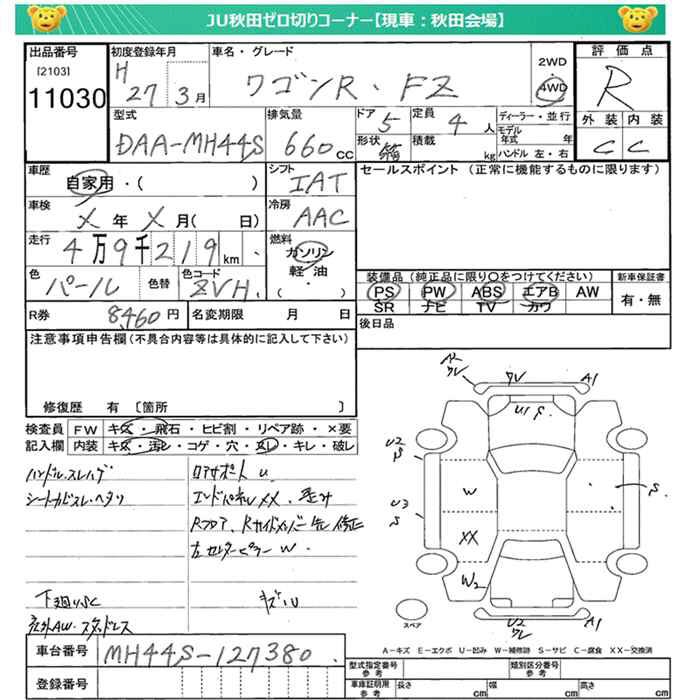 JU秋田ゼロ切りコーナー【現車：秋田会場】
出品番号 初度登録年月 車名・グレード 2WD 評価点
[2103] H 4WD
11030 27 3月 ワゴンR・FZ R
型式 排気量 ドア 定員 ディーラー・並行 外装 内装
DAA-MH44S 660cc 5 4人 モデル年式 年 C C
形状 積載 kg ハンドル 左・右
車歴 シフト セールスポイント（正常に機能するものに限ります）
自家用・（ ） IAT
車検 X年X月（ 日） 冷房 AAC
走行 4万9千219km 燃料 ガソリン
色 色替 色コード 軽油
パール ZVH （・） 装備品（純正品に限り○をつけてください） 新車保証書
PS PW ABS エアB AW 有・無
SR ナビ TV カワ
R券 8,460円 名変期限 月 日 後日品
注意事項申告欄（不具合内容等は具体的に記入して下さい）
修復歴 有 〔箇所 〕
検査員 FW キズ・飛石・ヒビ割・リペア跡・×要
記入欄 内装 キズ・汚レ・コゲ・穴・スレ・キレ・破レ
ハンドルスレハゲ
シート
エンドパネルXX
Rフロア
修正
W
キズU
下廻りSC
社外AW・スタッドレス
A2
A1
U1 S
U2
S
U3
S
W
XX
W2
S
U2
A1
スペア
A－キズ E－エクボ U－凹み W－補修跡 S－サビ C－腐食 XX－交換済
車台番号 MH44S-127380
登録番号
型式指定番号 参考 類別区分番号 参考
車庫証明用 参考 長さ cm 幅 cm 高さ cm